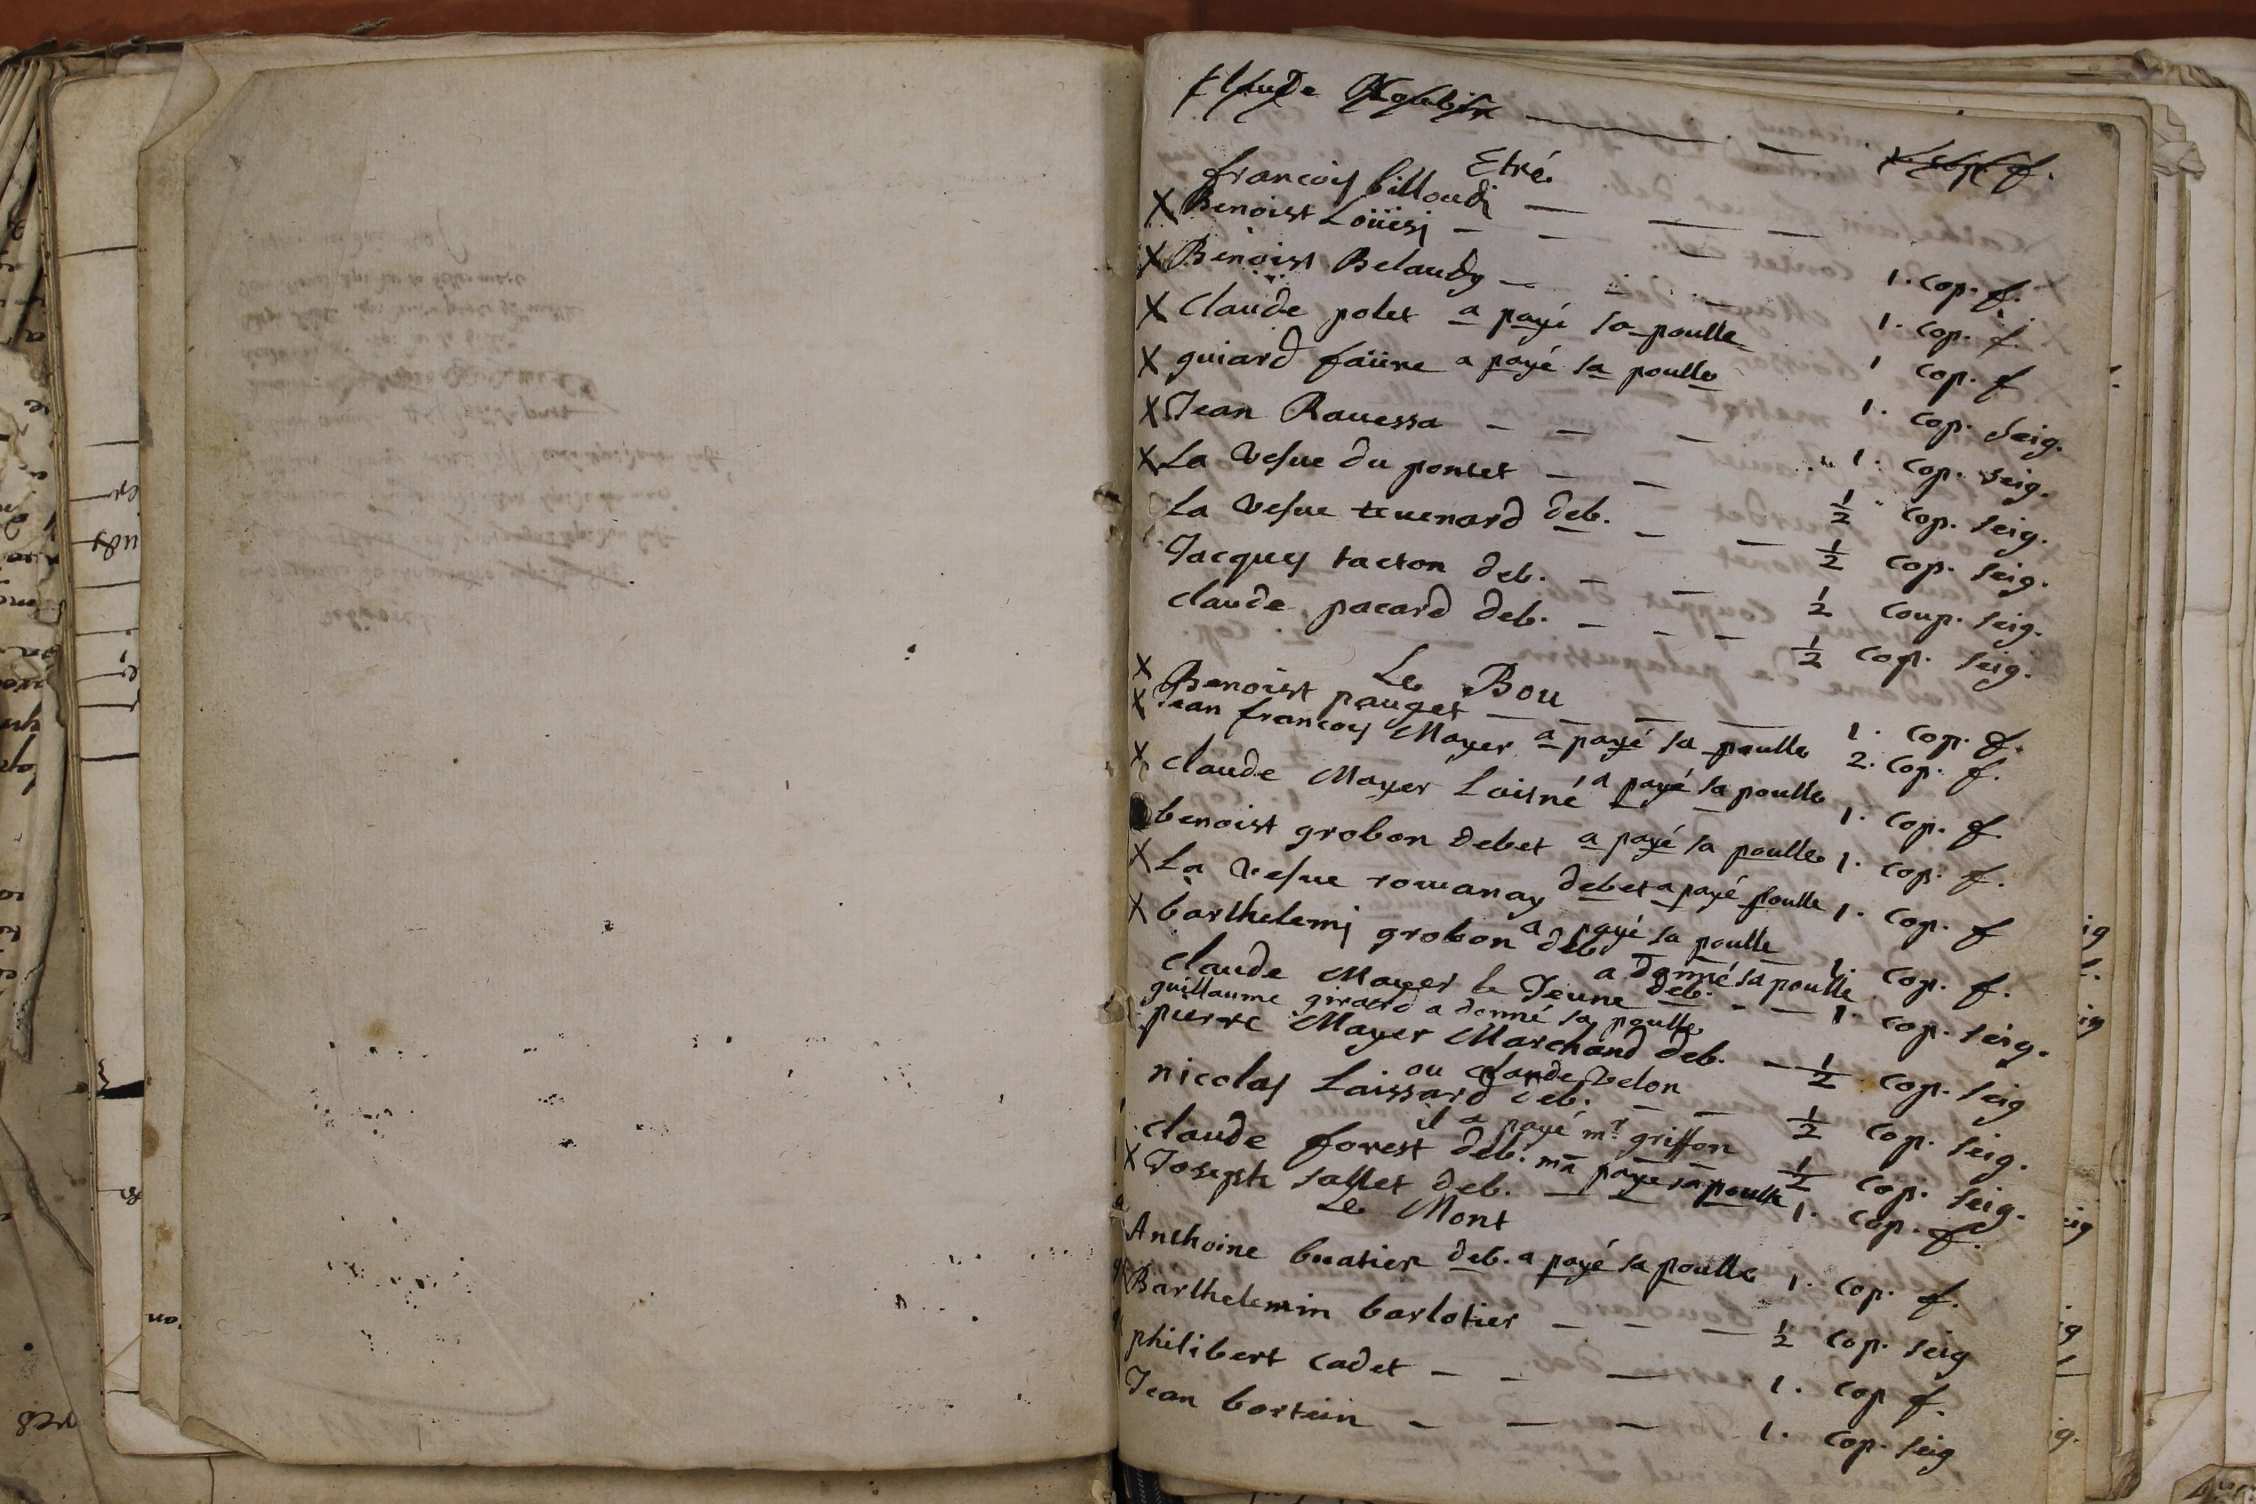 Claude
Etré
francois billoudi — — —
X Benoist Loüisi — — — — 1. Cop. f.
X Benoist Belaudy — — — 1. Cop. f.
X Claude polet a payé sa poulle 1 Cop. f
X guiard faüre a payé sa poulle 1. Cop. seig.
X Jean Rauessa — — — 1. Cop. seig.
X La Vesue du pontet — — 1/2 Cop. seig.
La Vesue teuenard deb. — — 1/2 Cop. seig.
Jacques tacton deb. — — 1/2 Coup. seig.
claude pacard deb. — — — 1/2 Cop. seig.
Le Bou
X Benoist pauget — — — — 1. Cop. f.
X Jean francois Mayer a payé sa poulle 2. Cop. f.
X claude Mayer Laisné a payé sa poulle 1. Cop. f.
benoist grobon debet a payé sa poulle 1. Cop. f.
X La Vesue romanay debet a payé poulle 1. Cop. f
X barthelemi grobon deb. a payé sa poulle 1. Cop. f.
a donné sa poulle
claude Mayer le Jeune deb. — — 1. Cop. seig.
guillaume girard a donné sa poulle
pierre Mayer Marchand deb. — 1/2 Cop. seig
ou claude Velon
nicolas Laissard deb. — — 1/2 Cop. seig.
il a payé mr. griffon
claude forest deb. ma payé sa poulle 1/2 Cop. seig.
X Joseph sallet deb. — — 1. Cop. f.
Le Mont
Anthoine buatier deb. a payé sa poulle 1. Cop. f.
Barthelemin barlotier — — — 1/2 Cop. seig
philibert cadet — — — 1. Cop f.
Jean bortein — — — 1. Cop. seig